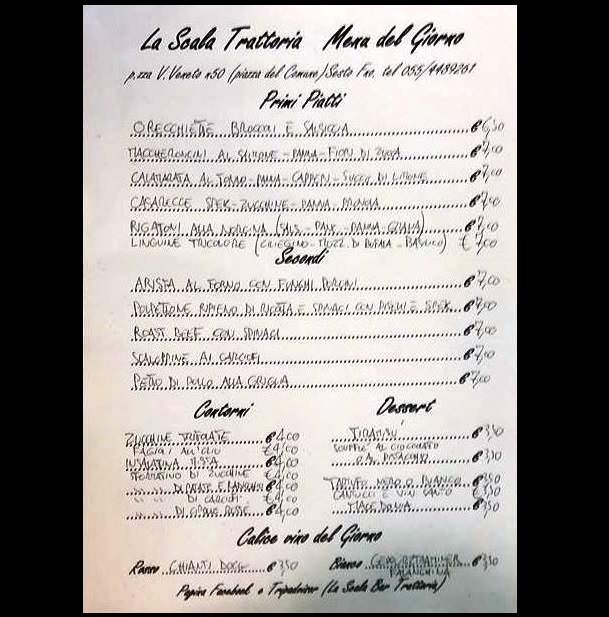 La Scala Trattoria Menu del Giorno
p.zza V.Veneto n50 (piazza del Comune) Sesto Fno. tel 055/4489261
Primi Piatti
ORECCHIETTE BROCCOLI E SALSICCIA € 6,50
MACCHERONCINI AL SALMONE - PANNA - FIORI DI ZUCCA € 7,00
CALAMARATA AL TONNO - PANNA - CAPPERI - SUCCO DI LIMONE € 7,00
CASARECCE SPEK - ZUCCHINE - PANNA - PROVOLA € 7,00
RIGATONI ALLA NORCINA (SALS - PANNA - GRANA) € 7,00
LINGUINE TRICOLORE (CILIEGINO - MOZZ. DI BUFALA - BASILICO) € 7,00
Secondi
ARISTA AL FORNO CON FUNGHI PORCINI € 7,00
POLPETTONE RIPIENO DI RICOTTA E SPINACI CON E SPEK € 7,00
ROAST BEEF CON SPINACI € 7,00
SCALOPPINE AI CARCIOFI € 7,00
PETTO DI POLLO ALLA GRIGLIA € 7,00
Contorni
ZUCCHINE TRIFOLATE € 4,00
FAGIOLI ALL'OLIO € 4,00
INSALATINA MISTA € 4,00
SFORMATINO DI ZUCCHINE € 4,00
" " DI PATATE E € 4,00
" " DI CARCIOFI € 4,00
" " DI CIPOLLE ROSSE € 4,00
Dessert
TIRAMISU' € 3,50
SOUFFLE' AL CIOCCOLATO
O AL PISTACCHIO € 3,50
TARTUFO NERO O BIANCO € 3,50
CANTUCCI E VIN SANTO € 3,50
MACEDONIA € 3,50
Calice vino del Giorno
Rosso CHIANTI € 3,50
Bianco GEWURZTRAMINER € 3,50
FALANGHINA
Pagina Facebook e Tripadvisor (La Scala Bar Trattoria)